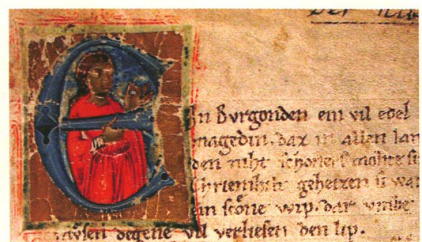 E
In Bvrgonden ein vil edel
magedin. daz in allen lan
den niht schoners mohte si
Chriemhilt geheizen si war
ein scône wip. dar vmbe
mvsen degene vil verliesen den lip.